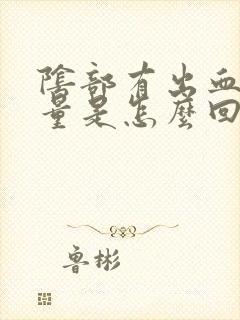 陰部有出血
量是怎麼回
魯彬